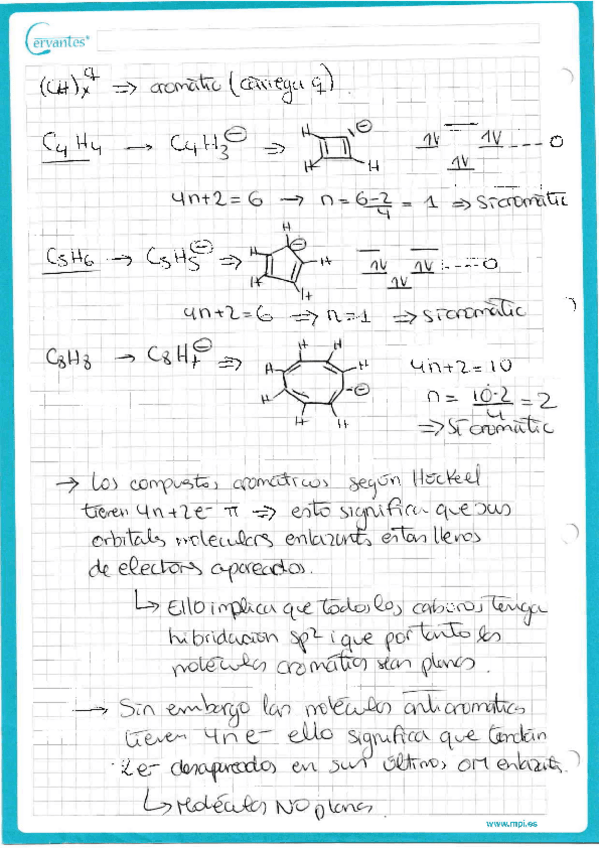 Cervantes®
(CH)x^q ⇒ aromàtic (càrrega q)
C4H4 → C4H3⊖ ⇒ H H H ⊖ 1V 1V 1V 0
4n+2 = 6 → n = 6-2/4 = 1 ⇒ Sí aromàtic
C5H6 → C5H5⊖ ⇒ H H H H H ⊖ 1V 1V 1V 0
4n+2 = 6 ⇒ n = 1 ⇒ sí aromàtic
C8H8 → C8H7⊖ ⇒ H H H H H H H ⊖ 4n+2 = 10
n = 10-2/4 = 2
⇒ Sí aromàtic
→ Los compuestos aromáticos según Hückel
tienen 4n+2e- π ⇒ esto significa que sus
orbitals moleculars enlazants estan llenos
de electrons apareados.
↳ Ello implica que todos los carbonos tenga
hibridación sp² i que por tanto las
moléculas aromáticas sean planas.
→ Sin embargo las moléculas antiaromáticas
tienen 4n e- ello significa que tendrán
2e- desapareados en sus últimos OM enlazants.
↳ Moléculas NO planas.
www.mpi.es